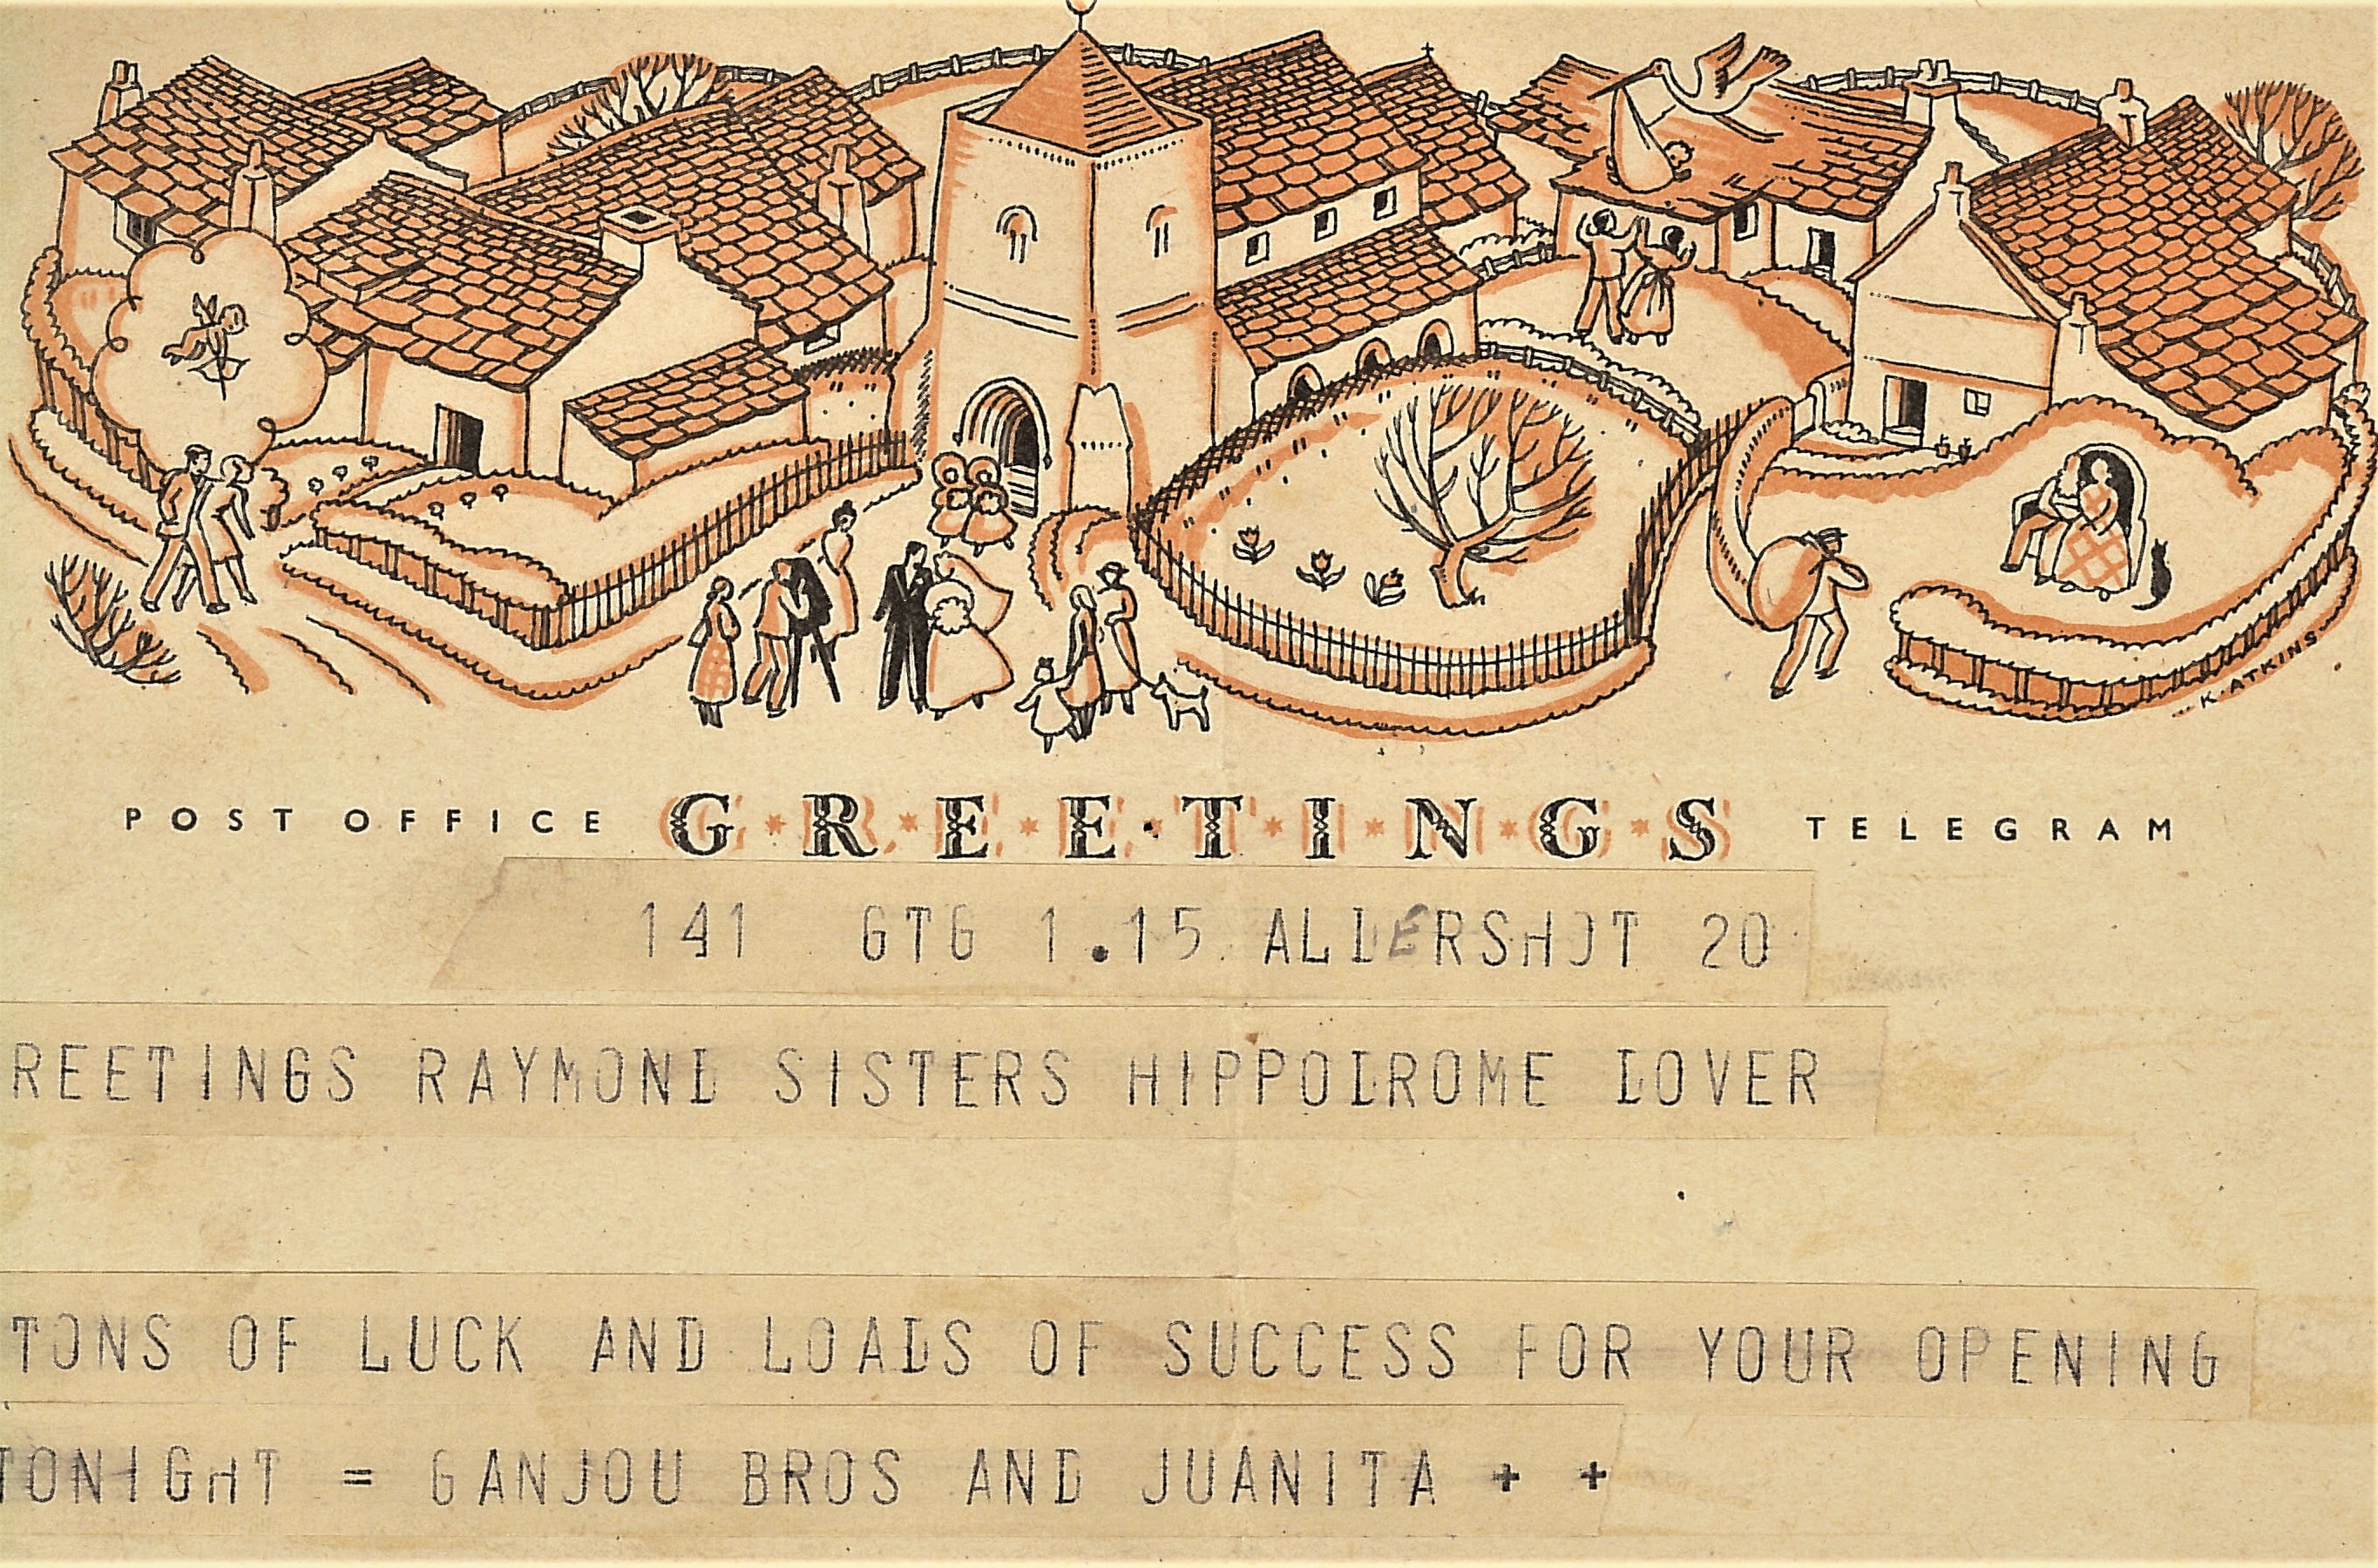 K. ATKINS
POST OFFICE GREETINGS TELEGRAM
141 GTG 1.15 ALDERSHOT 20
REETINGS RAYMOND SISTERS HIPPODROME DOVER
TONS OF LUCK AND LOADS OF SUCCESS FOR YOUR OPENING
TONIGHT = GANJOU BROS AND JUANITA + +